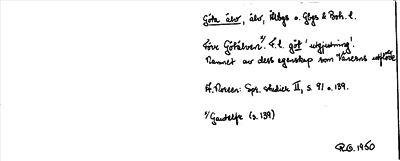 Göta älv, älv, Älvbgs o. Gbgs & Boh. l.
Förr Götälven. ¹/ F.l. göt 'utgjutning'.
Namnet av dess egenskap som Vänerns utflöde
A. Noreen: Spr. studier II, s. 91 o. 139.
¹/ Gautelfr (s. 139)
R.G. 1950